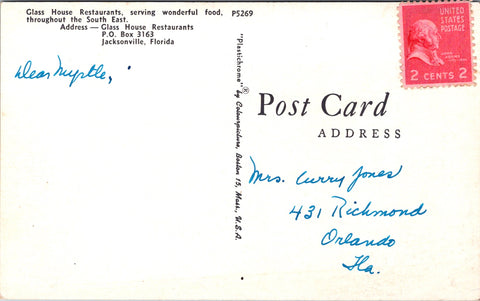 Glass House Restaurants, serving wonderful food, P5269
throughout the South East.
Address — Glass House Restaurants
P.O. Box 3163
Jacksonville, Florida
Dear Myrtle,
"Plastichrome"® by Colourpicture, Boston 15, Mass., U.S.A.
UNITED
STATES
POSTAGE
2 CENTS 2
Post Card
ADDRESS
Mrs. Curry Jones
431 Richmond
Orlando
Fla.